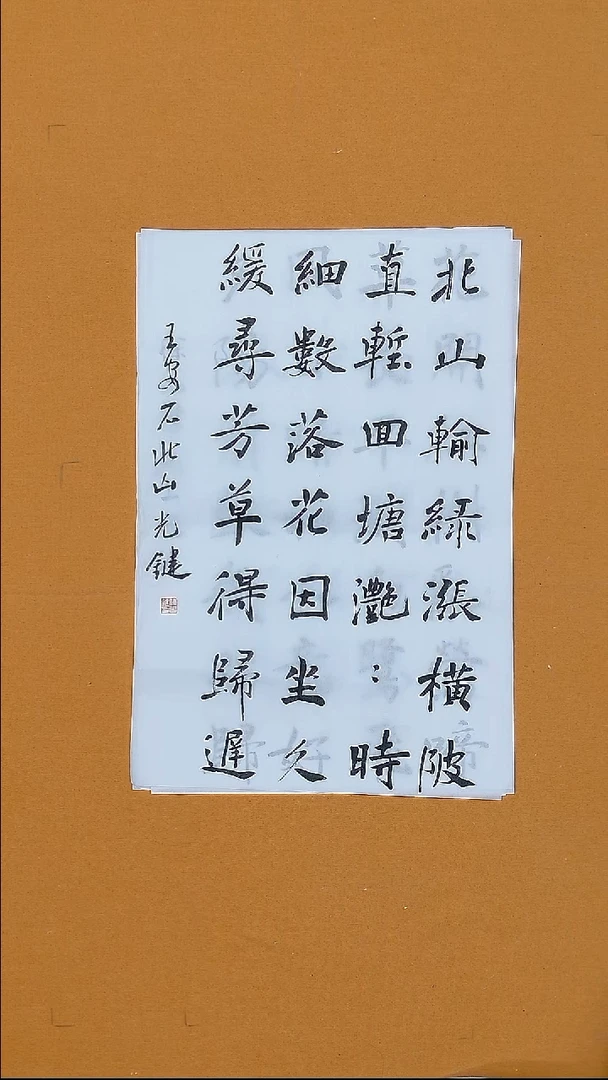 北山輸緑漲橫陂
直塹囬塘灧〻時
細數落花因坐久
緩尋芳草得歸遲
王安石北山光鍵